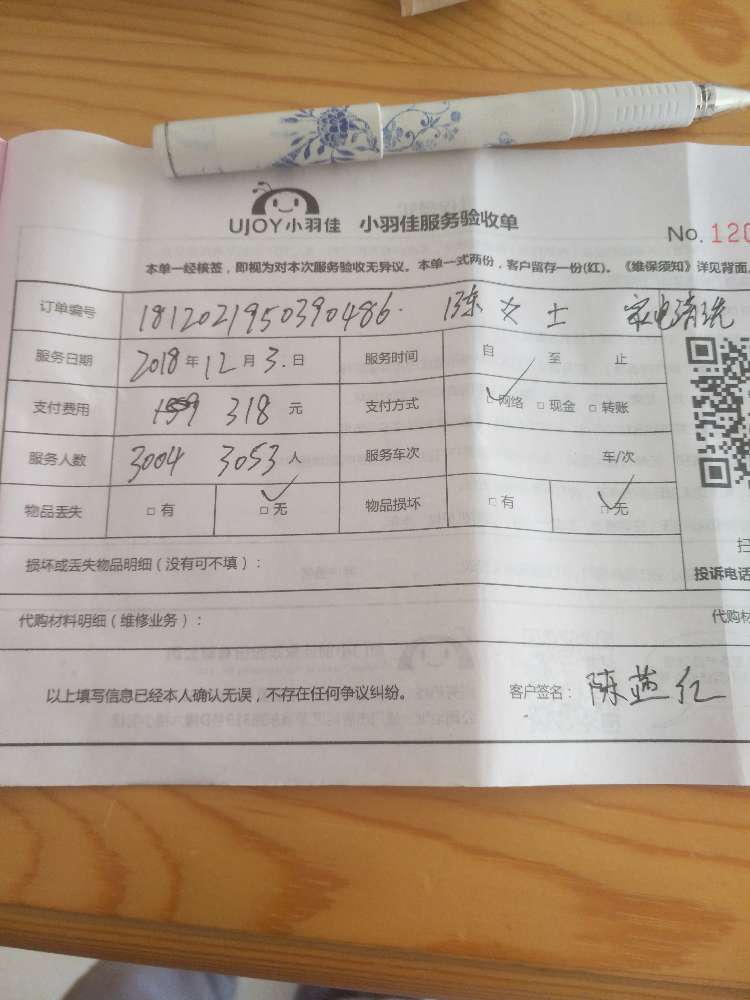 UJOY小羽佳 小羽佳服务验收单
No. 120
本单一经核签，即视为对本次服务验收无异议。本单一式两份，客户留存一份(红)。《维保须知》详见背面
订单编号 1812021950390486. 陈女士 家电清洗
服务日期 2018年12月3.日 服务时间 自 至 止
支付费用 318元 支付方式 □网络 □现金 □转账
服务人数 3004 3053人 服务车次 车/次
物品丢失 □有 □无 物品损坏 □有 □无
扫
损坏或丢失物品明细（没有可不填）： 投诉电话
代购材料明细（维修业务）： 代购材
以上填写信息已经本人确认无误，不存在任何争议纠纷。 客户签名：陈燕红